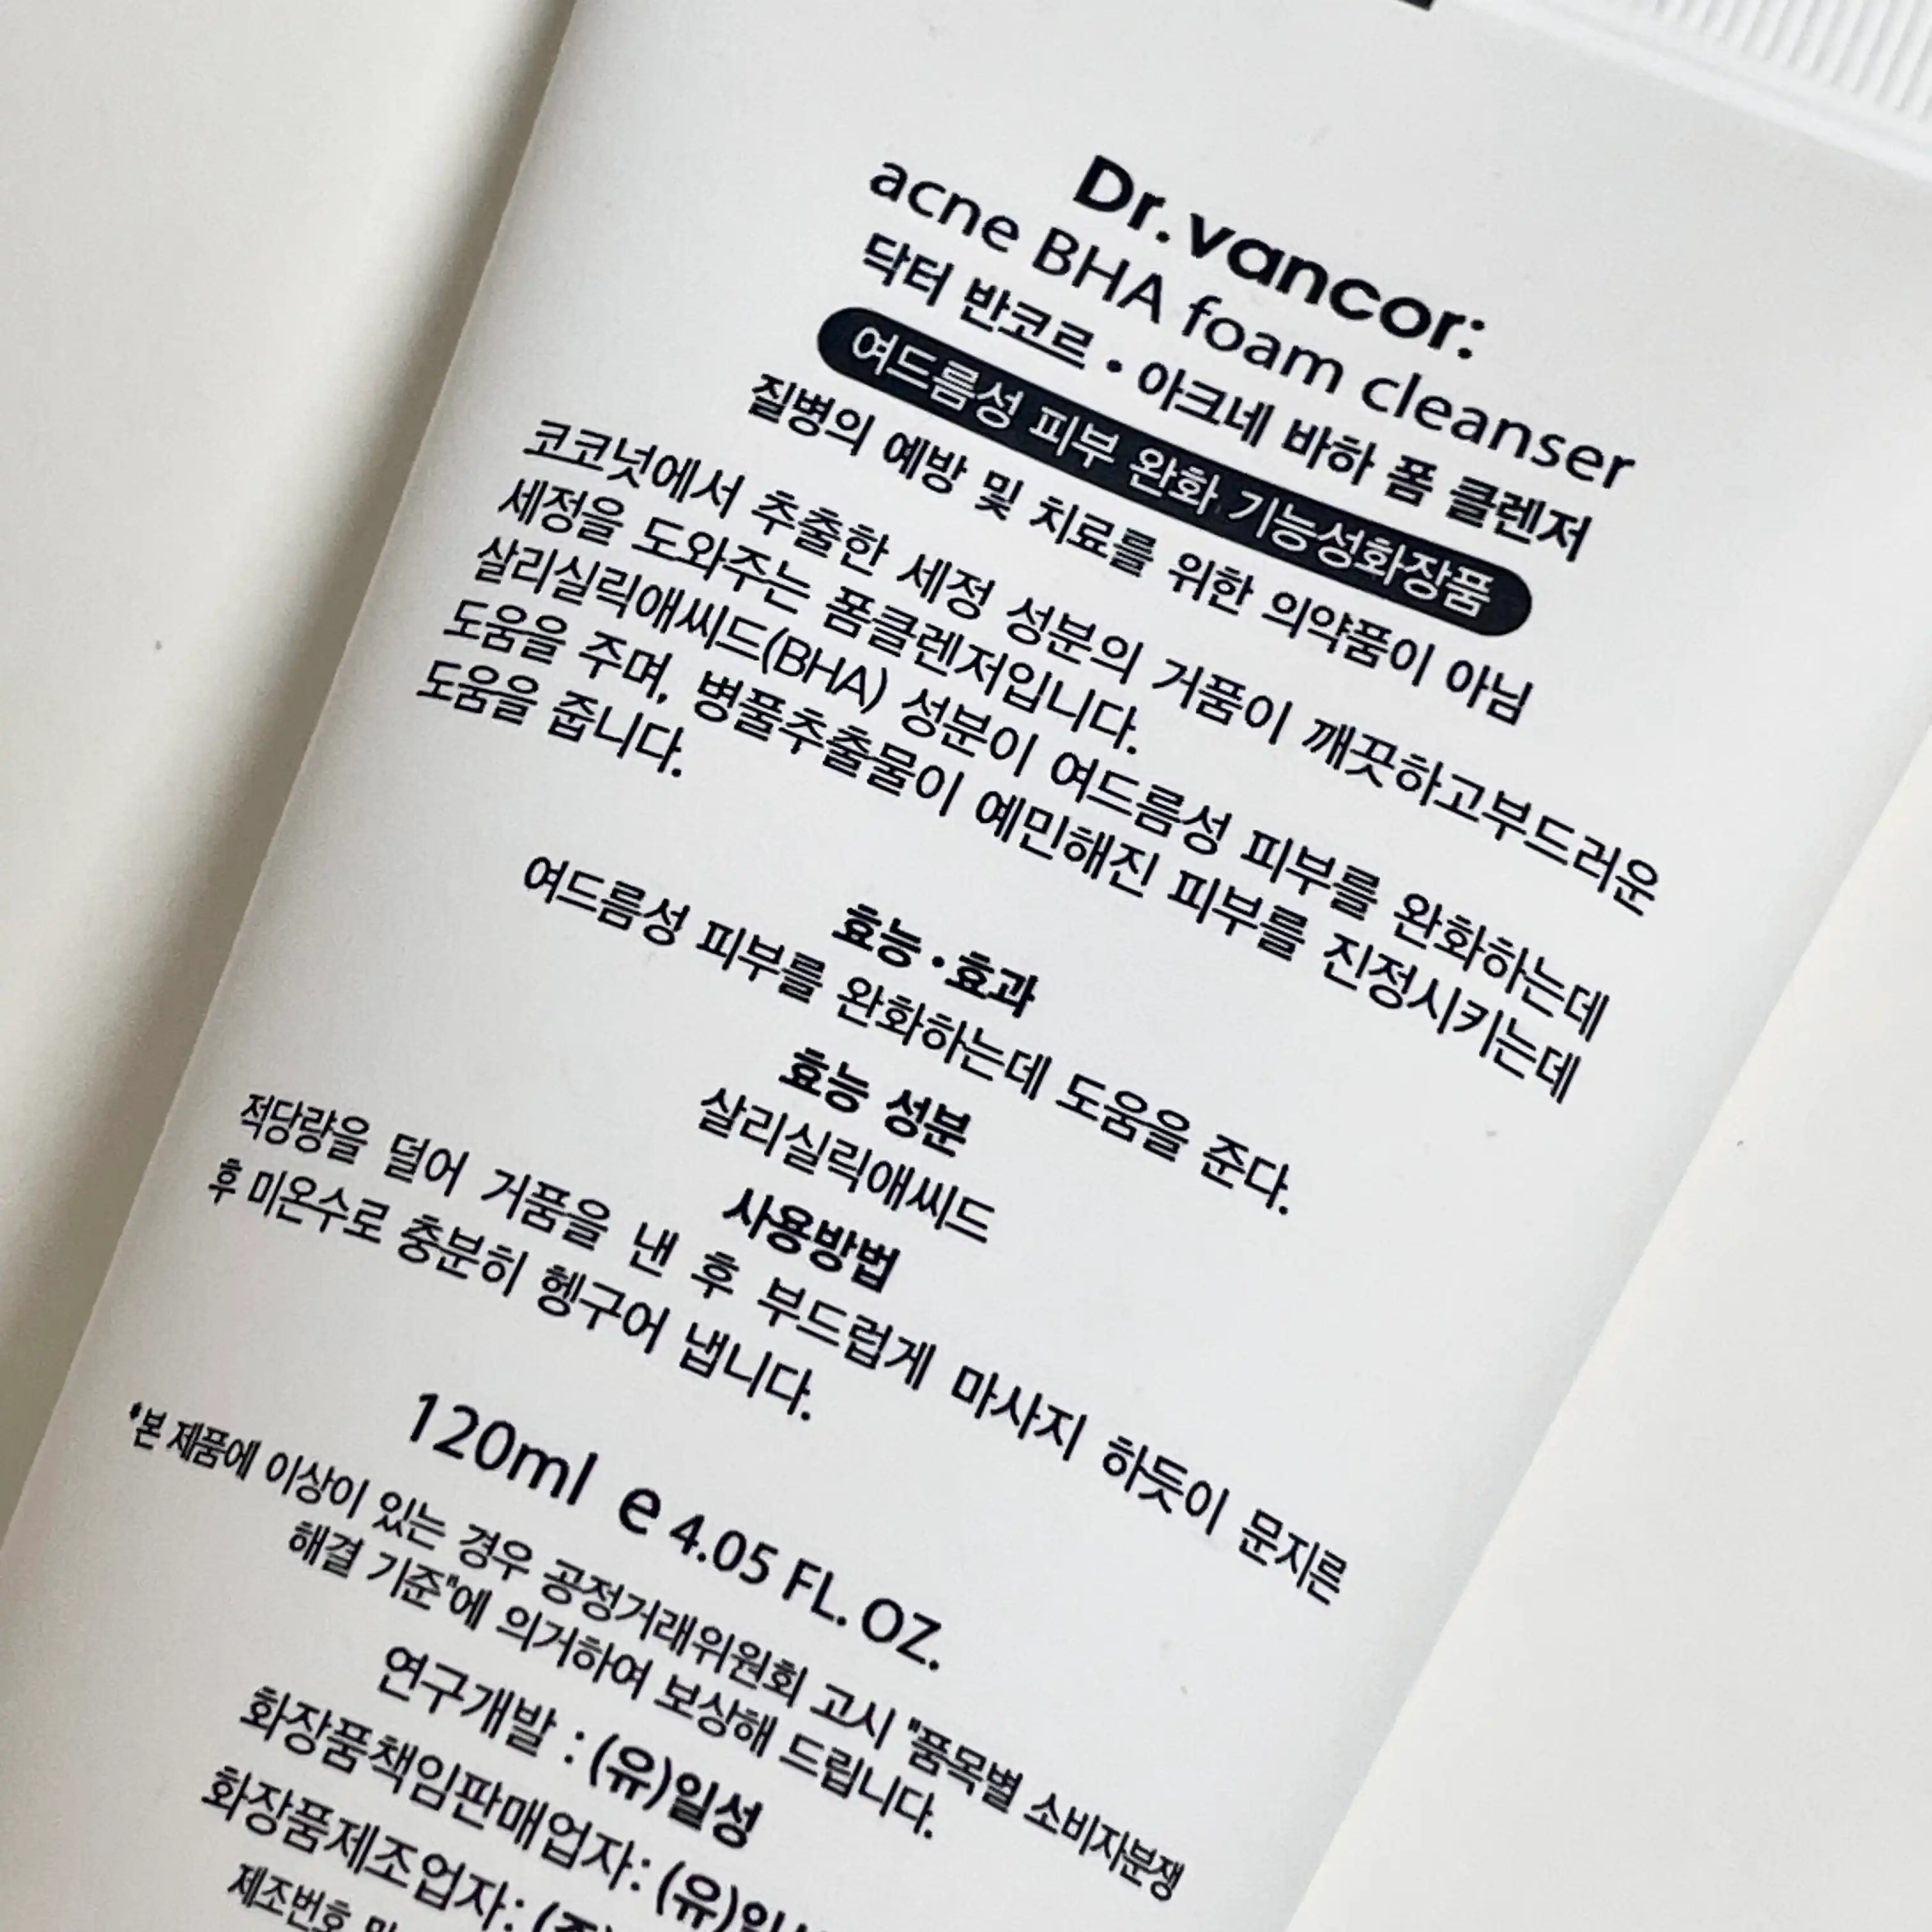 Dr.vancor:
acne BHA foam cleanser
닥터 반코르 • 아크네 바하 폼 클렌저
여드름성 피부 완화 기능성화장품
질병의 예방 및 치료를 위한 의약품이 아님
코코넛에서 추출한 세정 성분의 거품이 깨끗하고부드러운
세정을 도와주는 폼클렌저입니다.
살리실릭애씨드(BHA) 성분이 여드름성 피부를 완화하는데
도움을 주며, 병풀추출물이 예민해진 피부를 진정시키는데
도움을 줍니다.
효능•효과
여드름성 피부를 완화하는데 도움을 준다.
효능 성분
살리실릭애씨드
사용방법
적당량을 덜어 거품을 낸 후 부드럽게 마사지 하듯이 문지른
후 미온수로 충분히 헹구어 냅니다.
120ml e 4.05 FL. OZ.
*본 제품에 이상이 있는 경우 공정거래위원회 고시 "품목별 소비자분쟁
해결 기준"에 의거하여 보상해 드립니다.
연구개발 : (유)일성
화장품책임판매업자: (유)일
화장품제조업자: (주)
제조번호 및